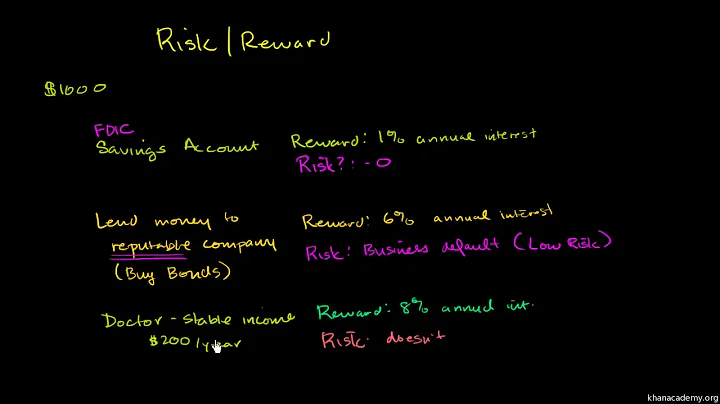 Risk | Reward
$1000
FDIC
Savings Account Reward: 1% annual interest
Risk?: ~0
Lend money to Reward: 6% annual interest
reputable company Risk: Business default (Low Risk)
(Buy Bonds)
Doctor - stable income Reward: 8% annual int.
$200/year Risk: doesn't
khanacademy.org